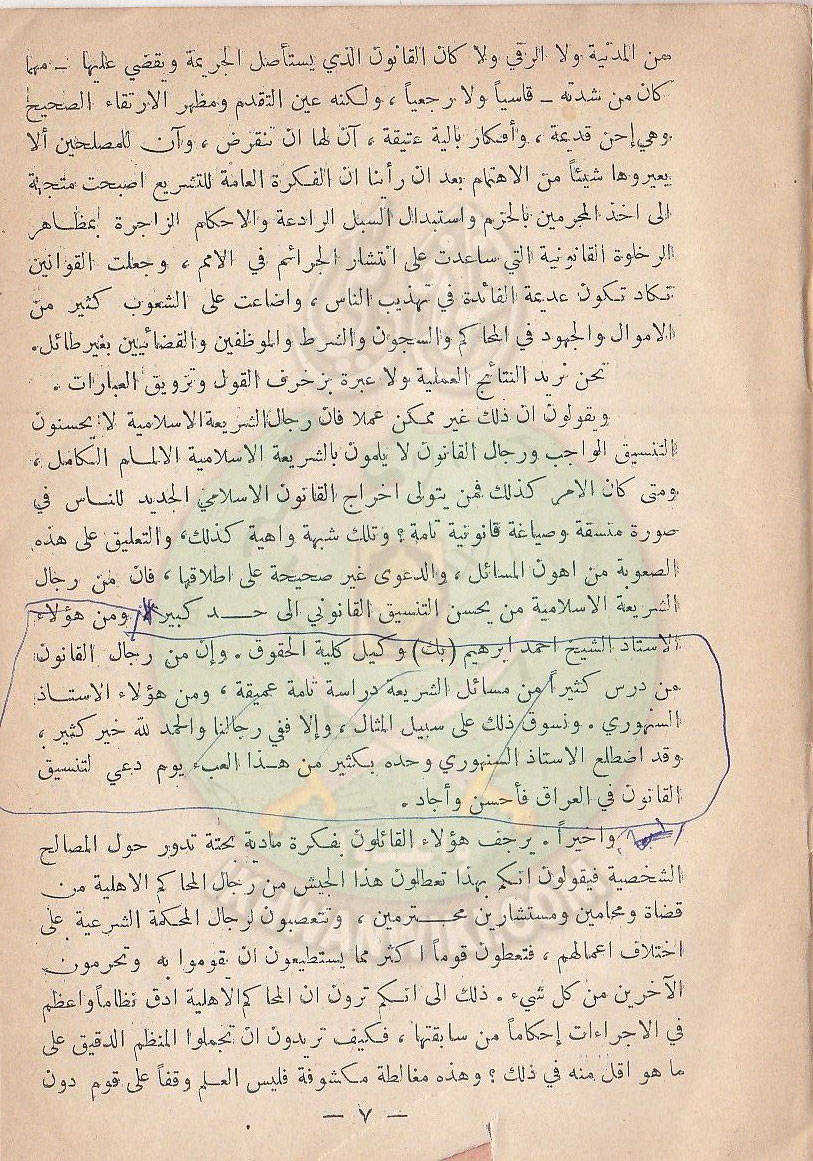 من المدنية ولا الرقي ولا كان القانون الذي يستأصل الجريمة ويقضي عليها ــ مهما
كان من شدته ــ قاسياً ولا رجعياً ، ولكنه عين التقدم ومظهر الارتقاء الصحيح
وهي إحن قديمة ، وأفكار بالية عتيقة ، آن لها ان تنقرض ، وآن للمصلحين ألا
يعيروها شيئاً من الاهتمام بعد ان رأينا ان الفكرة العامة للتشريع اصبحت متجهة
الى اخذ المجرمين بالحزم واستبدال السبل الرادعة والاحكام الزاجرة بمظاهر
الرخاوة القانونية التي ساعدت على انتشار الجرائم في الامم ، وجعلت القوانين
تكاد تكون عديمة الفائدة في تهذيب الناس ، واضاعت على الشعوب كثير من
الاموال والجهود في المحاكم والسجون والشرط والموظفين والقضائيين بغير طائل .
نحن نريد النتائج العملية ولا عبرة بزخرف القول وتزويق العبارات .
ويقولون ان ذلك غير ممكن عملا فان رجال الشريعة الاسلامية لا يحسنون
التنسيق الواجب ورجال القانون لا يلمون بالشريعة الاسلامية الالمام الكامل ،
ومتى كان الامر كذلك فمن يتولى اخراج القانون الاسلامي الجديد للناس في
صورة منسقة وصياغة قانونية تامة ؟ وتلك شبهة واهية كذلك ، والتعليق على هذه
الصعوبة من اهون المسائل ، والدعوى غير صحيحة على اطلاقها ، فان من رجال
الشريعة الاسلامية من يحسن التنسيق القانوني الى حد كبير ، ومن هؤلاء
الاستاذ الشيخ احمد ابرهيم (بك) وكيل كلية الحقوق . وإن من رجال القانون
من درس كثيراً من مسائل الشريعة دراسة تامة عميقة ، ومن هؤلاء الاستاذ
السنهوري . ونسوق ذلك على سبيل المثال ، وإلا ففي رجالنا والحمد لله خير كثير ،
وقد اضطلع الاستاذ السنهوري وحده بكثير من هذا العبء يوم دعي لتنسيق
القانون في العراق فأحسن وأجاد .
واخيراً . يرجف هؤلاء القائلون بفكرة مادية بحتة تدور حول المصالح
الشخصية فيقولون انكم بهذا تعطلون هذا الجيش من رجال المحاكم الاهلية من
قضاة ومحامين ومستشارين محترمين ، وتتعصبون لرجال المحكمة الشرعية على
اختلاف اعمالهم ، فتعطون قوماً اكثر مما يستطيعون ان يقوموا به وتحرمون
الآخرين من كل شيء . ذلك الى انكم ترون ان المحاكم الاهلية ادق نظاماً واعظم
في الاجراءات إحكاماً من سابقتها ، فكيف تريدون ان تجملوا المنظم الدقيق على
ما هو اقل منه في ذلك ؟ وهذه مغالطة مكشوفة فليس العلم وقفاً على قوم دون
— ٧ —